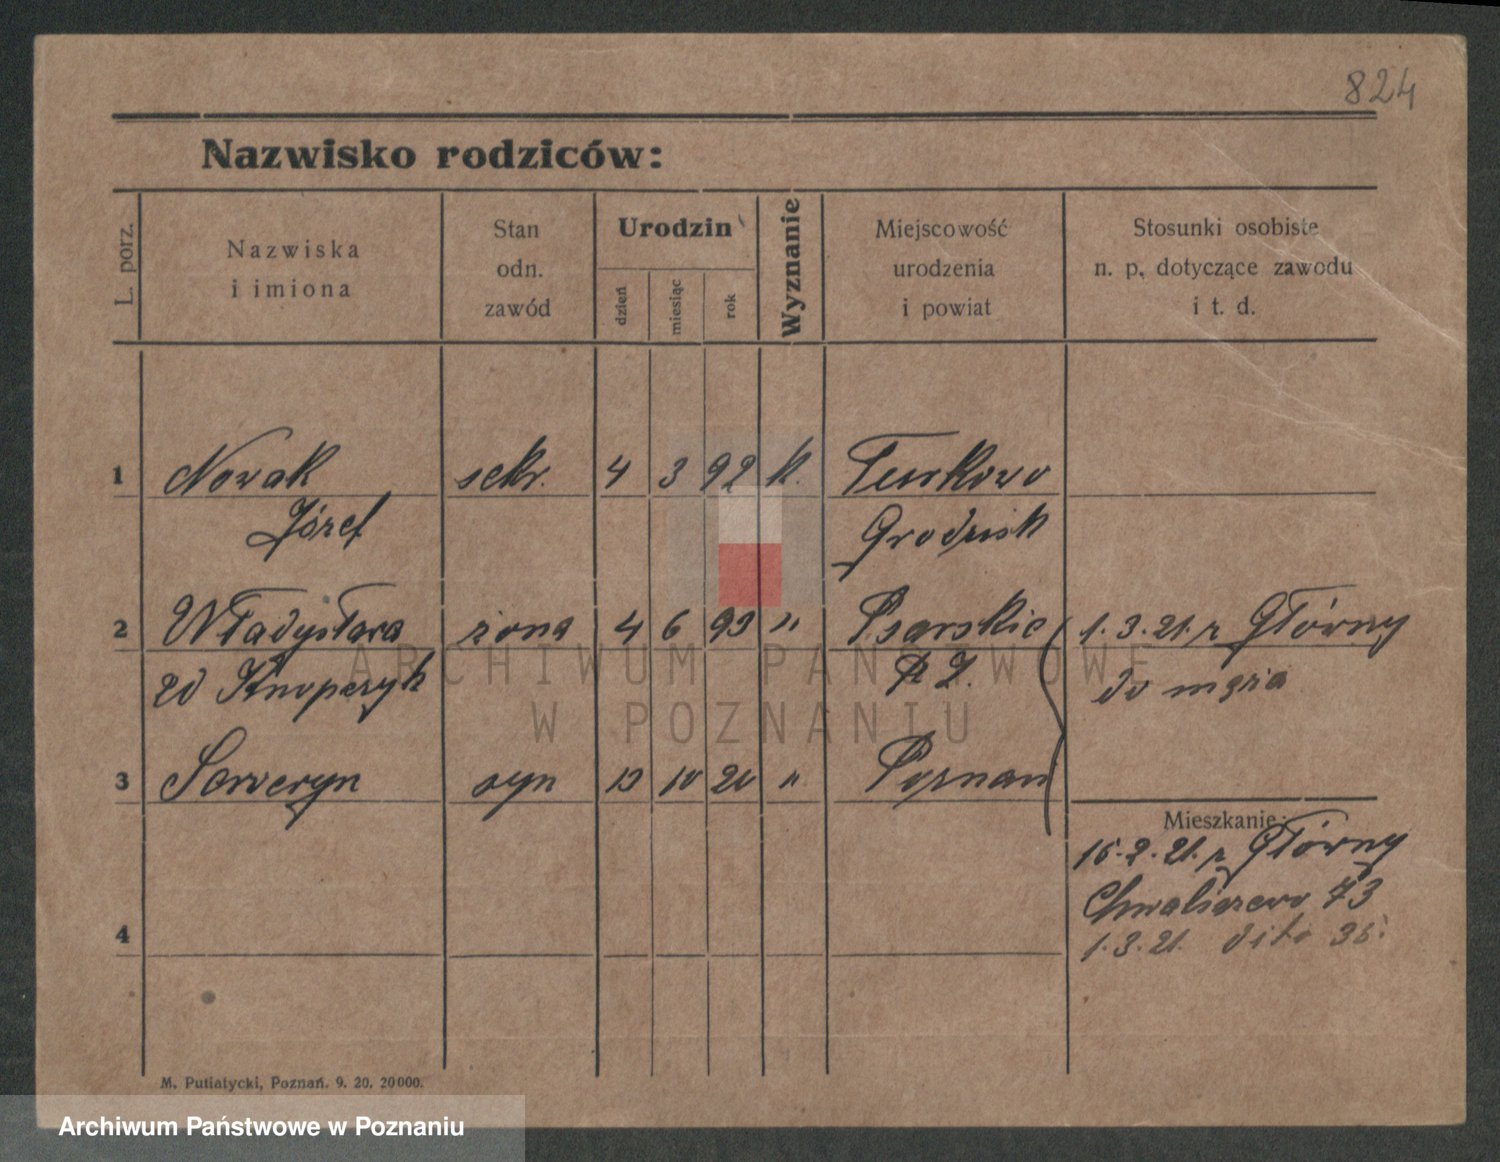 824
Nazwisko rodziców:
L. porz.
Nazwiska
i imiona
Stan
odn.
zawód
Urodzin
dzień
miesiąc
rok
Wyznanie
Miejscowość
urodzenia
i powiat
Stosunki osobiste
n. p. dotyczące zawodu
i t. d.
1 Nowak sekr. 4 3 92 k. Turkowo
Józef Grodzisk
2 Władysława żona 4 6 93 " Psarskie 1.3.21. z Główny
zd do męża
3 Serweryn syn 10 20 " Poznań
Mieszkanie:
15.2.21. z Główny
Chwaliszewo 73
4
1.3.21. dito
M. Putiatycki, Poznań. 9. 20. 20000.
ARCHIWUM PAŃSTWOWE
W POZNANIU
Archiwum Państwowe w Poznaniu